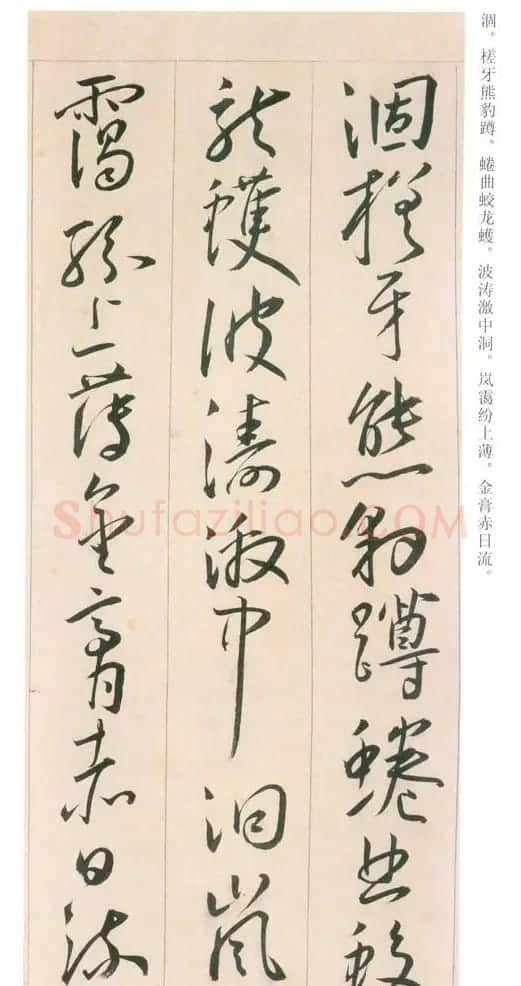 涸槎牙熊豹蹲蜷曲蛟
龙蠖波涛激中洞岚
霭纷上薄金膏赤日流
涸。槎牙熊豹蹲。蜷曲蛟龙蠖。波涛激中洞。岚霭纷上薄。金膏赤日流。
Shufaziliao.COM